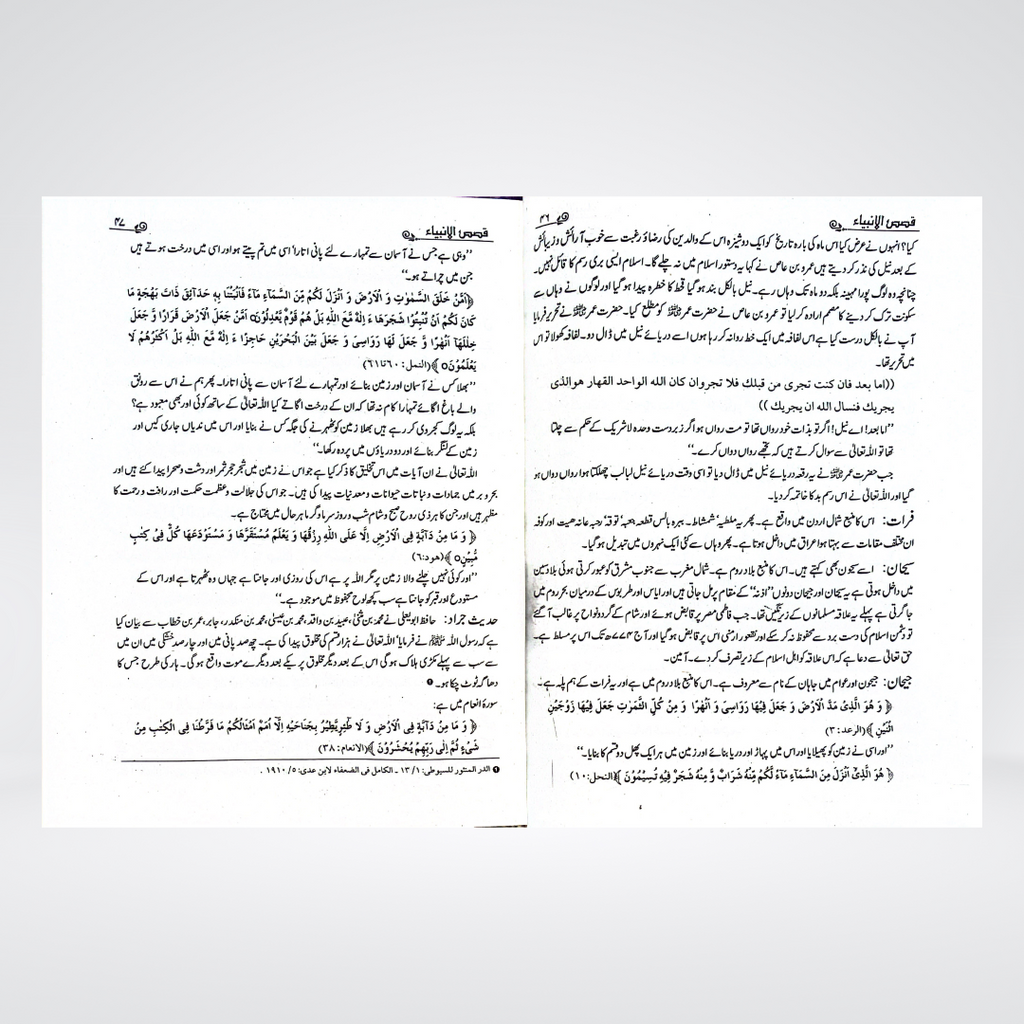 قصص الانبیاء ۴۶
کیا؟ انہوں نے عرض کیا اس ماہ کی بارہ تاریخ کو ایک دوشیزہ اس کے والدین کی رضاؤ رغبت سے خوب آرائش و زیبائش
کے بعد نیل کی نذر کر دیتے ہیں عمرو بن عاص نے کہا یہ دستور اسلام میں نہ چلے گا۔ اسلام ایسی بری رسم کا قائل نہیں۔
چنانچہ وہ لوگ پورا مہینہ بلکہ دو ماہ تک وہاں رہے۔ نیل بالکل بند ہو گیا قحط کا خطرہ پیدا ہو گیا اور لوگوں نے وہاں سے
سکونت ترک کر دینے کا مصمم ارادہ کر لیا تو عمرو بن عاص نے حضرت عمرؓ کو مطلع کیا۔ حضرت عمرؓ نے تحریر فرمایا
آپ نے بالکل درست کیا ہے اس لفافہ میں ایک خط روانہ کر رہا ہوں اسے دریائے نیل میں ڈال دو۔ لفافہ کھولا تو اس
میں تحریر تھا۔
((اما بعد فان كنت تجرى من قبلك فلا تجروان كان الله الواحد القهار هوالذى
يجريك فنسال الله ان يجريك))
’’اما بعد! اے نیل! اگر تو بذات خود رواں تھا تو مت رواں ہو اگر زبردست وحدہ لاشریک کے حکم سے چلتا
تھا تو اللہ تعالیٰ سے سوال کرتے ہیں کہ تجھے رواں دواں کرے۔‘‘
جب حضرت عمرؓ نے یہ رقعہ دریائے نیل میں ڈال دیا تو اسی وقت دریائے نیل لبالب چھلکتا ہوا رواں دواں ہو
گیا اور اللہ تعالیٰ نے اس رسم بد کا خاتمہ کر دیا۔
فرات: اس کا منبع شمال اردن میں واقع ہے۔ پھر یہ ملطیہ‘ شمشاط۔ بیرہ بالس قطعہ جعبہ‘ توقہ‘ رحبہ عانہ ھیت اور کوفہ
ان مختلف مقامات سے بہتا ہوا عراق میں داخل ہوتا ہے۔ پھر وہاں سے کئی ایک نہروں میں تبدیل ہو گیا۔
سیحان: اسے سیحون بھی کہتے ہیں۔ اس کا منبع بلاد روم ہے۔ شمال مغرب سے جنوب مشرق کو عبور کرتی ہوئی بلاد سین
میں داخل ہوتی ہے یہ سیحان اور جیحان دونوں ’’اذنہ‘‘ کے مقام پر مل جاتی ہیں اور ایاس اور طرسوس کے درمیان بحر روم میں
جا گرتی ہے پہلے یہ علاقہ مسلمانوں کے زیر نگیں تھا۔ جب فاطمی مصر پر قابض ہوئے اور شام کے گردونواح پر غالب آ گئے
تو دشمن اسلام کی دست برد سے محفوظ نہ کر سکے اور تقفور ارمنی اس پر قابض ہو گیا اور آج ۷۷۳ھ تک اس پر مسلط ہے۔
حق تعالیٰ سے دعا ہے کہ اس علاقہ کو اہل اسلام کے زیر تصرف کر دے۔ آمین۔
جیحان: جیحون اور عوام میں جاہان کے نام سے معروف ہے۔ اس کا منبع بلاد روم میں ہے اور یہ فرات کے ہم پلہ ہے۔
﴿ وَ هُوَ الَّذِیْ مَدَّ الْاَرْضَ وَ جَعَلَ فِیْهَا رَوَاسِیَ وَ اَنْهٰرًا وَ مِنْ كُلِّ الثَّمَرٰتِ جَعَلَ فِیْهَا زَوْجَیْنِ
اثْنَیْنِ ﴾(الرعد:۳)
’’اور اسی نے زمین کو پھیلایا اور اس میں پہاڑ اور دریا بنائے اور زمین میں ہر ایک پھل دو قسم کا بنایا۔‘‘
﴿ هُوَ الَّذِیْۤ اَنْزَلَ مِنَ السَّمَآءِ مَآءً لَّكُمْ مِّنْهُ شَرَابٌ وَّ مِنْهُ شَجَرٌ فِیْهِ تُسِیْمُوْنَ ﴾(النحل:۱۰)
قصص الانبیاء ۴۷
’’وہی ہے جس نے آسمان سے تمہارے لئے پانی اتارا‘ اسی میں تم پیتے ہو اور اسی میں درخت ہوتے ہیں
جن میں چراتے ہو۔‘‘
﴿اَمَّنْ خَلَقَ السَّمٰوٰتِ وَ الْاَرْضَ وَ اَنْزَلَ لَكُمْ مِّنَ السَّمَآءِ مَآءً فَاَنْۢبَتْنَا بِهٖ حَدَآئِقَ ذَاتَ بَهْجَةٍ مَا
كَانَ لَكُمْ اَنْ تُنْۢبِتُوْا شَجَرَهَا ءَ اِلٰهٌ مَّعَ اللّٰهِ بَلْ هُمْ قَوْمٌ یَّعْدِلُوْنَ○ اَمَّنْ جَعَلَ الْاَرْضَ قَرَارًا وَّ جَعَلَ
خِلٰلَهَا اَنْهٰرًا وَّ جَعَلَ لَهَا رَوَاسِیَ وَ جَعَلَ بَیْنَ الْبَحْرَیْنِ حَاجِزًا ءَ اِلٰهٌ مَّعَ اللّٰهِ بَلْ اَكْثَرُهُمْ لَا
یَعْلَمُوْنَ○ ﴾(النمل:۶۰ تا ۶۱)
’’بھلا کس نے آسمان اور زمین بنائے اور تمہارے لئے آسمان سے پانی اتارا۔ پھر ہم نے اس سے رونق
والے باغ اگائے تمہارا کام نہ تھا کہ ان کے درخت اگاتے کیا اللہ تعالیٰ کے ساتھ کوئی اور بھی معبود ہے؟
بلکہ یہ لوگ کجروی کر رہے ہیں بھلا زمین کو ٹھہرنے کی جگہ کس نے بنایا اور اس میں ندیاں جاری کیں اور
زمین کے لنگر بنائے اور دو دریاؤں میں پردہ رکھا۔‘‘
اللہ تعالیٰ نے ان آیات میں اس تخلیق کا ذکر کیا ہے جو اس نے زمین میں شجر حجر ثمر اور دشت و صحرا پیدا کئے ہیں اور
بحر و بر میں جمادات و نباتات حیوانات و معدنیات پیدا کی ہیں۔ جو اس کی جلالت و عظمت حکمت اور رافت و رحمت کا
مظہر ہیں اور جن کا ہر ذی روح صبح و شام شب و روز سرما و گرما ہر حال میں محتاج ہے۔
﴿ وَ مَا مِنْ دَآبَّةٍ فِی الْاَرْضِ اِلَّا عَلَی اللّٰهِ رِزْقُهَا وَ یَعْلَمُ مُسْتَقَرَّهَا وَ مُسْتَوْدَعَهَا كُلٌّ فِیْ كِتٰبٍ
مُّبِیْنٍ○ ﴾(هود:۶)
’’اور کوئی نہیں چلنے والا زمین پر مگر اللہ پر ہے اس کی روزی اور جانتا ہے جہاں وہ ٹھہرتا ہے اور اس کے
مستودع اور قبر کو جانتا ہے سب کچھ لوح محفوظ میں موجود ہے۔‘‘
حدیث جراد: حافظ ابو یعلیٰ نے محمد بن مثنیٰ، عبید بن واقد، محمد بن عیسیٰ، محمد بن منکدر، جابر، عمر بن خطاب سے بیان کیا
ہے کہ رسول اللہ ﷺ نے فرمایا ’’اللہ تعالیٰ نے ہزار قسم کی مخلوق پیدا کی ہے۔ چھ صد پانی میں اور چار صد خشکی میں ان میں
سے سب سے پہلے مکڑی ہلاک ہوگی اس کے بعد دیگر مخلوق پر یکے بعد دیگرے موت واقع ہوگی۔ ہار کی طرح جس کا
دھاگہ ٹوٹ چکا ہو۔ ❶
سورۃ انعام میں ہے:
﴿ وَ مَا مِنْ دَآبَّةٍ فِی الْاَرْضِ وَ لَا طٰٓئِرٍ یَّطِیْرُ بِجَنَاحَیْهِ اِلَّاۤ اُمَمٌ اَمْثَالُكُمْ مَا فَرَّطْنَا فِی الْكِتٰبِ مِنْ
شَیْءٍ ثُمَّ اِلٰی رَبِّهِمْ یُحْشَرُوْنَ ﴾(الانعام:۳۸)
❶ الدر المنثور للسيوطى: ۱/ ۱۳ ۔ الكامل فى الضعفاء لابن عدى: ۵/ ۱۹۱۰ ۔